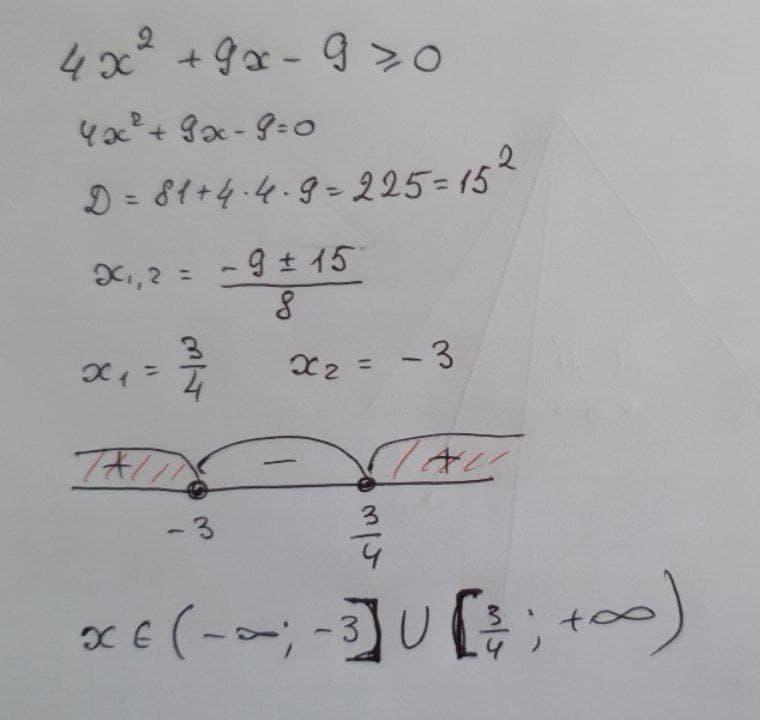 4x² + 9x - 9 ≥ 0
4x² + 9x - 9 = 0
D = 81 + 4 · 4 · 9 = 225 = 15²
x₁,₂ = (-9 ± 15)/8
x₁ = 3/4   x₂ = -3
+ − +
-3   3/4
x ∈ (-∞; -3] ∪ [3/4; +∞)